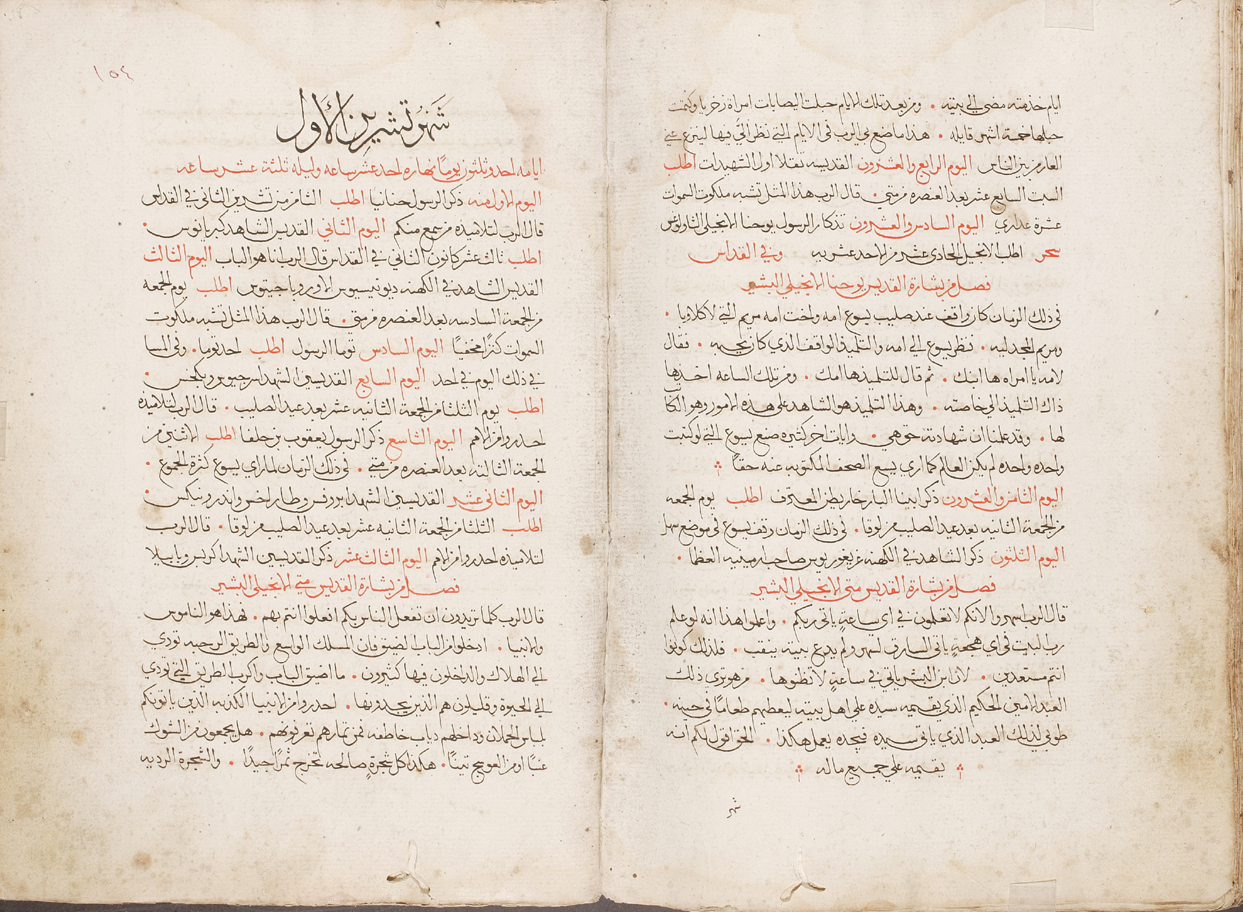 ايام خدمته مضى الى بيته ۰ ومن بعد تلك الايام حبلت اليصابات امراة زخريا وكتمت
حبلها خمسة اشهر قايله ۰ هذا ما صنع بي الرب في الايام التي نظر الي فيها لينزع عني
العار من بين الناس اليوم الرابع والعشرون القديسه تقلا اول الشهيدات اطلب
السبت السابع عشر بعد العنصره من متى ۰ قال الرب هذا المثل تشبه ملكوت السموات
عشرة عذاري اليوم السادس والعشرون تذكار الرسول يوحنا الانجيلي الثاولوغس
سحر اطلب الانجيل الحادي عشر من الاحد عشريه وفي القداس
فصل من بشارة القديس يوحنا الانجيلي البشير
في ذلك الزمان كان واقف عند صليب يسوع امه واخت امه مريم التي لاكلاوبا ۰
ومريم المجدليه ۰ فنظر يسوع الى امه والتلميذ الواقف الذي كان يحبه ۰ فقال
لامه يا امراه ها ابنك ۰ ثم قال للتلميذ ها امك ۰ ومن تلك الساعه اخدها
ذاك التلميذ الى خاصته ۰ وهذا التلميذ هو الشاهد على هذه الامور وهو الكاتب
لها ۰ وقد علمنا ان شهادته حق هي ۰ وايات اخر كثيره صنع يسوع التي لو كتبت
واحده واحده لم يكن العالم كما اري يسع الصحف المكتوبه عنه حقا
اليوم الثامن والعشرون ذكر ابينا البار خاريطن المعترف اطلب يوم الجمعه
من الجمعة الثانيه بعد عيد الصليب من لوقا ۰ في ذلك الزمان وقف يسوع في موضع سهل
اليوم الثلثون ذكر الشاهد في الكهنه غريغوريوس صاحب ارمينيه العظما ۰
فصل من بشارة القديس متى الانجيلي البشير
قال الرب اسهروا لانكم لا تعلمون في اي ساعة ياتي ربكم ۰ واعلموا هذا انه لو علم
رب البيت في اي هجعة ياتي السارق لسهر ولم يدع بيته ينقب ۰ فلذلك كونوا
انتم مستعدين ۰ لان ابن البشر ياتي في ساعة لا تظنوها ۰ من هو تري ذلك
العبد الامين الحكيم الذي يقيمه سيده على اهل بيته ليعطيهم طعاما في حينه ۰
طوبى لذلك العبد الذي ياتي سيده فيجده يعمل هكذا ۰ الحق اقول لكم انه
يقيمه على جميع ماله
شهر
١٥٤
شهر تشرين الاول
ايامه احد وثلثون يوما نهاره احد عشر ساعه وليله ثلثة عشر ساعه
اليوم الاول منه ذكر الرسول حنانيا اطلب الثامن من تشرين الثاني في القداس
قال الرب لتلاميذه من سمع منكم اليوم الثاني القديس الشاهد كبريانوس ۰
اطلب ثالث عشر كانون الثاني في القداس قال الرب انا هو الباب اليوم الثالث
القديس الشاهد في الكهنه ديونيسيوس الاريوباجيتوس اطلب يوم الجمعه
من الجمعة السادسه بعد العنصره من متى ۰ قال الرب هذا المثل تشبه ملكوت
السموات كنزا مخفيا اليوم السادس توما الرسول اطلب احد توما ۰ وفي المسا
في ذلك اليوم في احد اليوم السابع القديسين الشهدا سرجيوس وبكخس ۰
اطلب يوم الثلثا من الجمعة الثانيه عشر بعد عيد الصليب ۰ قال الرب لتلاميذه
احدروا من الامم اليوم التاسع ذكر الرسول يعقوب بن حلفا اطلب الاثنين من
الجمعة الثالثه بعد العنصره من متى ۰ في ذلك الزمان لما راي يسوع كثرة الجموع ۰
اليوم الثاني عشر القديسين الشهدا بروفس وطاراخس واندرونيكس ۰
اطلب الثلثا من الجمعة الثانيه عشر بعد عيد الصليب من لوقا ۰ قال الرب
لتلاميذه احدروا من الامم اليوم الثالث عشر ذكر القديسين الشهدا كربس وبابيلا
فصل من بشارة القديس متى الانجيلي البشير
قال الرب كلما تريدون ان تفعل الناس بكم افعلوا انتم بهم ۰ فهذا هو الناموس
والانبيا ۰ ادخلوا من الباب الضيق فان المسلك الواسع والطريق الرحبه تودي
الى الهلاك والداخلون فيها كثيرون ۰ ما اضيق الباب واكرب الطريق التي تودي
الى الحيوة وقليلون هم الذين يجدونها ۰ احدروا من الانبيا الكذبه الذين ياتونكم
بلباس الحملان وداخلهم دياب خاطفه فمن ثمارهم تعرفونهم ۰ هل يجمعون من الشوك
عنبا او من العوسج تينا ۰ هكذا كل شجرة صالحه تخرج ثمرا جيدا ۰ والشجرة الرديه